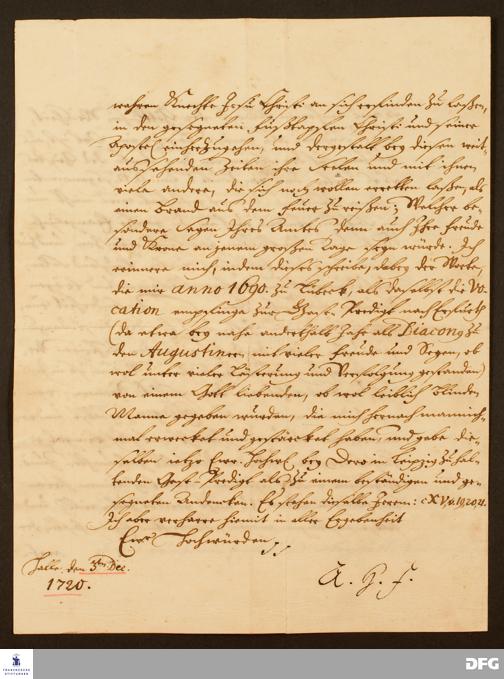 wahren Knechte Jesu Christi an sich erfinden zu laßen,
in den gesegneten Fußstapfen Christi und seiner
Apostel einherzugehen, und dergestalt bey diesen weit-
aussehenden Zeiten ihre Seelen und mit ihnen
viele andere, die sich noch wollen erretten laßen, als
einen Brand aus dem Feuer zu reißen; Welches be-
sondere Segen Ihres Amtes denn auch Ihre Freude
und Krone an jenem großen Tage seyn würde. Ich
erinnere mich, indem dieses schreibe, dabey der Worte,
die mir anno 1690. zu Lübeck, als daselbst die Vo-
cation empfinge zur Gast-Predigt nach Erfurth
(da etwa bey nahe anderthalb Jahr als Diaconus zu
den Augustinern, mit vieler Freude und Segen, ob
wol unter viele Lästerung und Verfolgung gestanden)
von einem Gott liebenden, ob wol leiblich blinden
Manne gegeben wurden, die mich hernach mannich-
mal erwecket und gestärcket haben, und gebe die-
selben ietzo Ewr. Hochw. bey Dero in Leipzig zu hal-
tenden Gast-Predigt als zu einem beständigen und ge-
segneten Andencken. Es stehen dieselbe Jerem: c XV, v. 19. 20. 21.
Ich aber verharre hiemit in aller Ergebenheit
Ewr Hochwürden
Halle, den 3ten Dec.
1720.
A. H. F.
FRANCKESCHE STIFTUNGEN
DFG